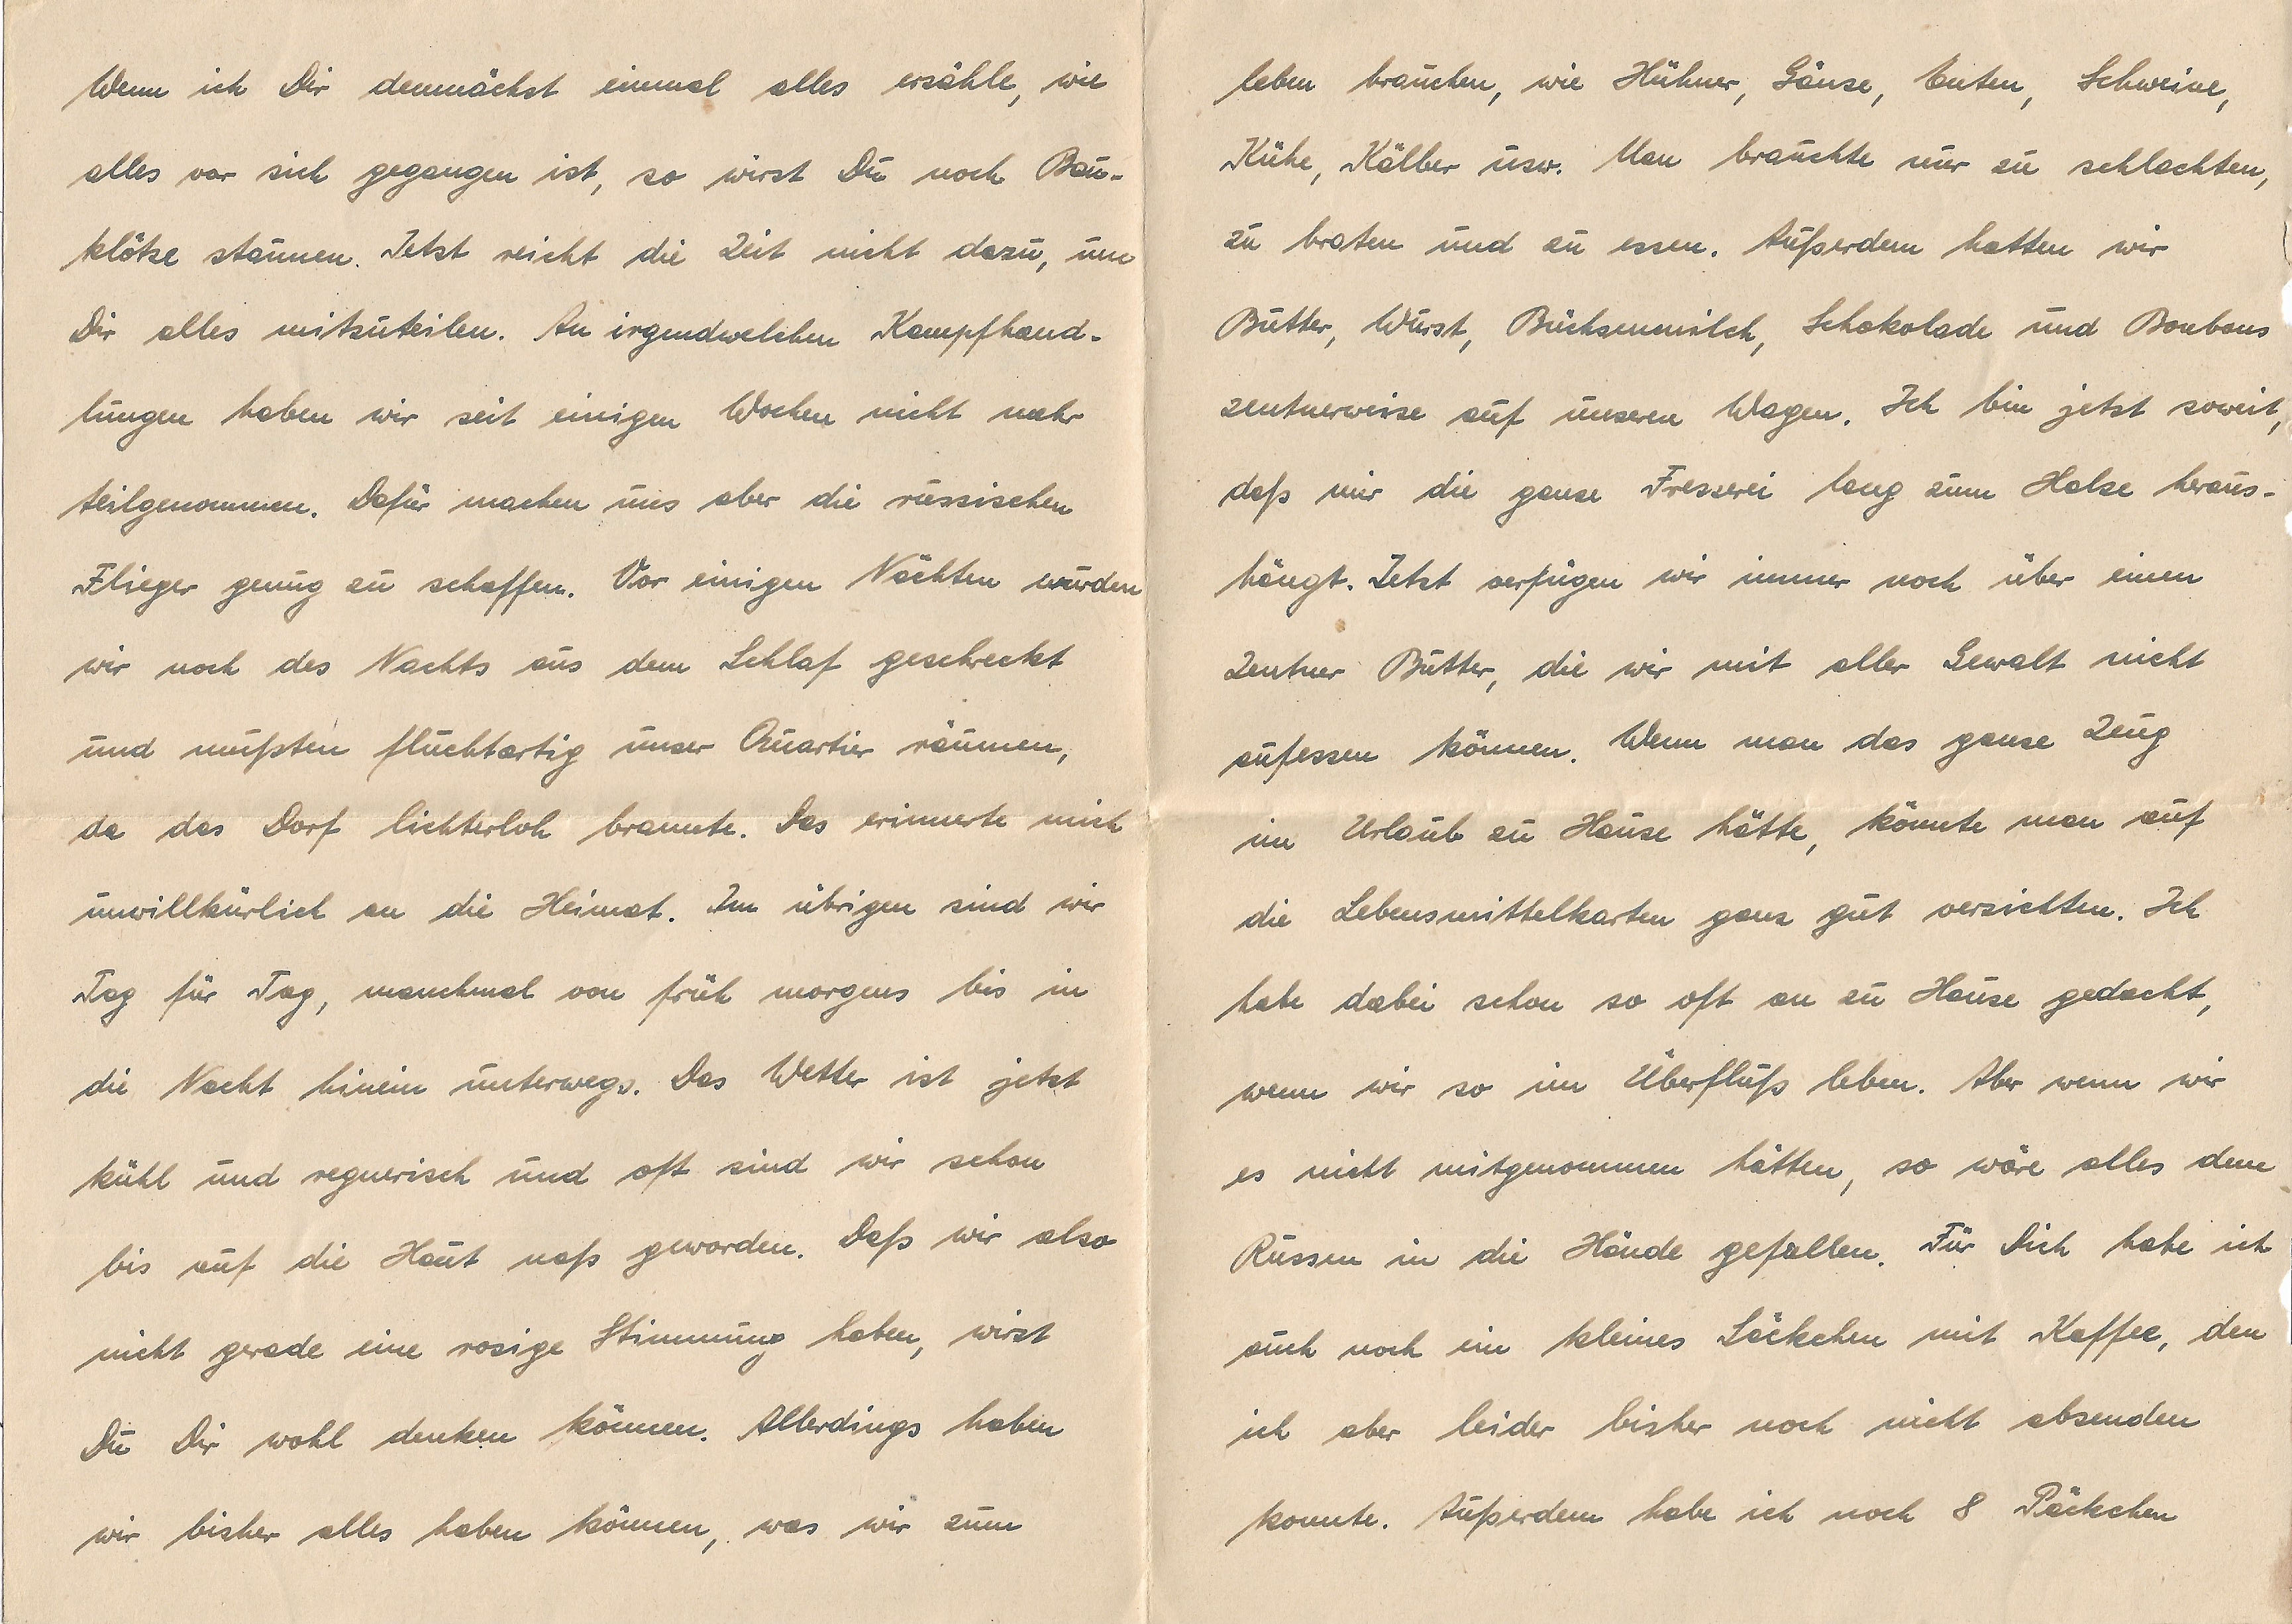 Wenn ich Dir demnächst einmal alles erzähle, wie
alles vor sich gegangen ist, so wirst Du noch Bau-
klötze staunen. Jetzt reicht die Zeit nicht dazu, um
Dir alles mitzuteilen. An irgendwelchen Kampfhand-
lungen haben wir seit einigen Wochen nicht mehr
teilgenommen. Dafür machen uns aber die russischen
Flieger genug zu schaffen. Vor einigen Nächten wurden
wir noch des Nachts aus dem Schlaf geschreckt
und mußten fluchtartig unser Quartier räumen,
da das Dorf lichterloh brannte. Das erinnerte mich
unwillkürlich an die Heimat. Im übrigen sind wir
Tag für Tag, manchmal von früh morgens bis in
die Nacht hinein unterwegs. Das Wetter ist jetzt
kühl und regnerisch und oft sind wir schon
bis auf die Haut naß geworden. Daß wir also
nicht gerade eine rosige Stimmung haben, wirst
Du Dir wohl denken können. Allerdings haben
wir bisher alles haben können, was wir zum
leben brauchen, wie Hühner, Gänse, Enten, Schweine,
Kühe, Kälber usw. Man brauchte nur zu schlachten,
zu braten und zu essen. Außerdem hatten wir
Butter, Wurst, Büchsenmilch, Schokolade und Bonbons
zentnerweise auf unseren Wagen. Ich bin jetzt soweit,
daß mir die ganze Fresserei lang zum Halse heraus-
hängt. Jetzt verfügen wir immer noch über einen
Zentner Butter, die wir mit aller Gewalt nicht
aufessen können. Wenn man das ganze Zeug
im Urlaub zu Hause hätte, könnte man auf
die Lebensmittelkarten ganz gut verzichten. Ich
habe dabei schon so oft an zu Hause gedacht,
wenn wir so im Überfluß leben. Aber wenn wir
es nicht mitgenommen hätten, so wäre alles dem
Russen in die Hände gefallen. Für Dich habe ich
auch noch ein kleines Säckchen mit Kaffee, den
ich aber leider bisher noch nicht absenden
konnte. Außerdem habe ich noch 8 Päckchen